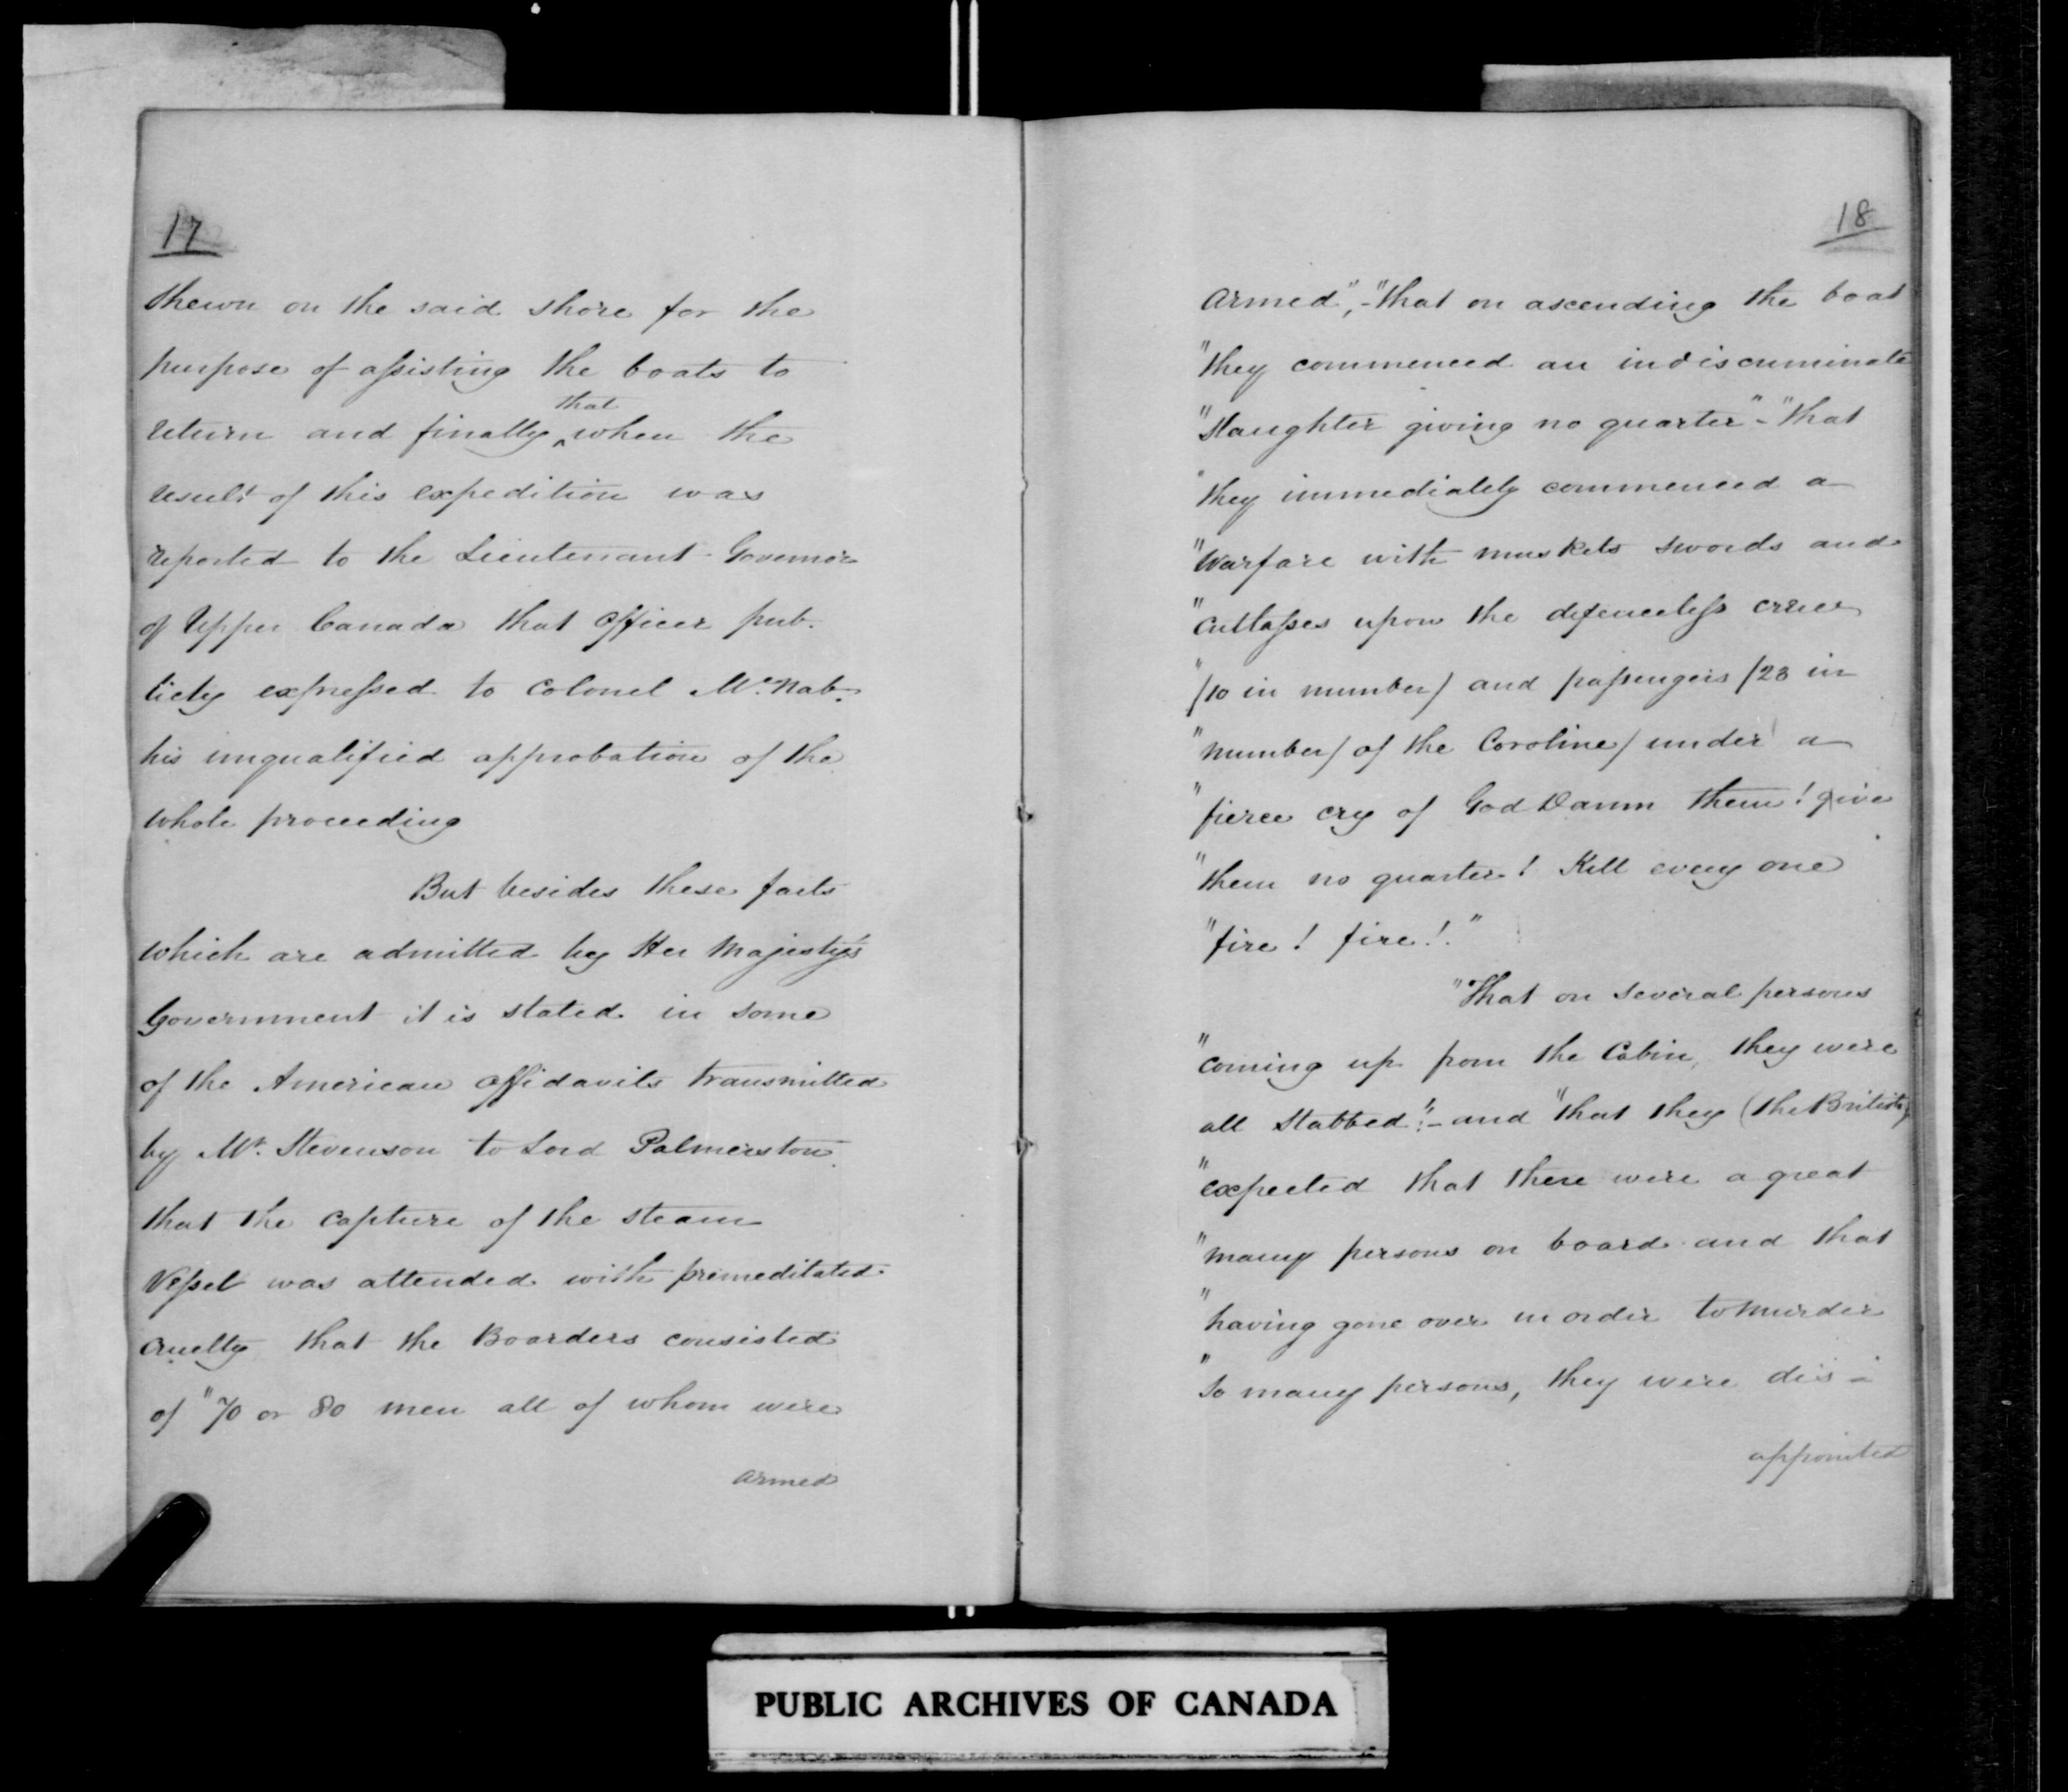 17
shewn on the said shore for the
purpose of assisting the boats to
return and finally that when the
result of this expedition was
reported to the Lieutenant Governor
of Upper Canada that Officer pub-
licly expressed to Colonel McNab
his unqualified approbation of the
whole proceeding
But besides these facts
which are admitted by Her Majesty's
Government it is stated in some
of the American Affidavits transmitted
by Mr. Stevenson to Lord Palmerston
that the capture of the steam
Vessel was attended with premeditated
cruelty that the Boarders consisted
of "70 or 80 men all of whom were
armed
18
armed", - "that on ascending the boat
"they commenced an indiscriminate
"slaughter giving no quarter" - "that
"they immediately commenced a
"warfare with muskets swords and
"cutlasses upon the defenceless crew
"/10 in number/ and passengers /23 in
"number/ of the Caroline/ under a
"fierce cry of God Damn them! give
"them no quarter! Kill every one
"fire! fire!."
"That on several persons
"coming up from the Cabin, they were
all stabbed": - and "that they (the British)
"expected that there were a great
"many persons on board and that
"having gone over in order to murder
"so many persons, they were dis-
appointed
PUBLIC ARCHIVES OF CANADA